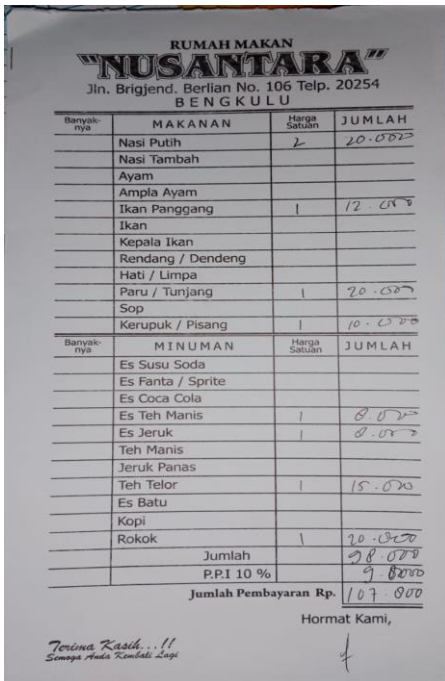 RUMAH MAKAN
"NUSANTARA"
Jln. Brigjend. Berlian No. 106 Telp. 20254
BENGKULU
Banyak-nya MAKANAN Harga Satuan JUMLAH
Nasi Putih 2 20.000
Nasi Tambah
Ayam
Ampla Ayam
Ikan Panggang 1 12.000
Ikan
Kepala Ikan
Rendang / Dendeng
Hati / Limpa
Paru / Tunjang 1 20.000
Sop
Kerupuk / Pisang 1 10.000
Banyak-nya MINUMAN Harga Satuan JUMLAH
Es Susu Soda
Es Fanta / Sprite
Es Coca Cola
Es Teh Manis 1 8.000
Es Jeruk 1 8.000
Teh Manis
Jeruk Panas
Teh Telor 1 15.000
Es Batu
Kopi
Rokok 1 20.000
Jumlah 98.000
P.P.I 10 % 9.8000
Jumlah Pembayaran Rp. 107.800
Hormat Kami,
Terima Kasih...!!
Semoga Anda Kembali Lagi